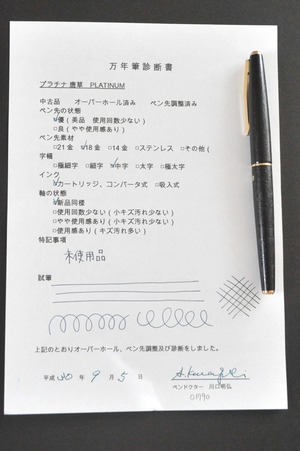 万年筆診断書
プラチナ 唐草 PLATINUM
中古品 オーバーホール済み ペン先調整済み
ペン先の状態
☑優(美品 使用回数少ない)
□良(やや使用感あり)
ペン先素材
□21金 ☑18金 □14金 □ステンレス □その他(
字幅
□極細字 □細字 ☑中字 □太字 □極太字
インク
☑カートリッジ、コンバータ式 □吸入式
軸の状態
☑新品同様
□使用回数少ない(小キズ汚れ少ない)
□やや使用感あり(小キズ汚れ少ない)
□使用感あり(キズ汚れ多い)
特記事項
未使用品
試筆
上記のとおりオーバーホール、ペン先調整及び診断をしました。
平成 30 年 9 月 5 日
ペンドクター 川口明弘
01790